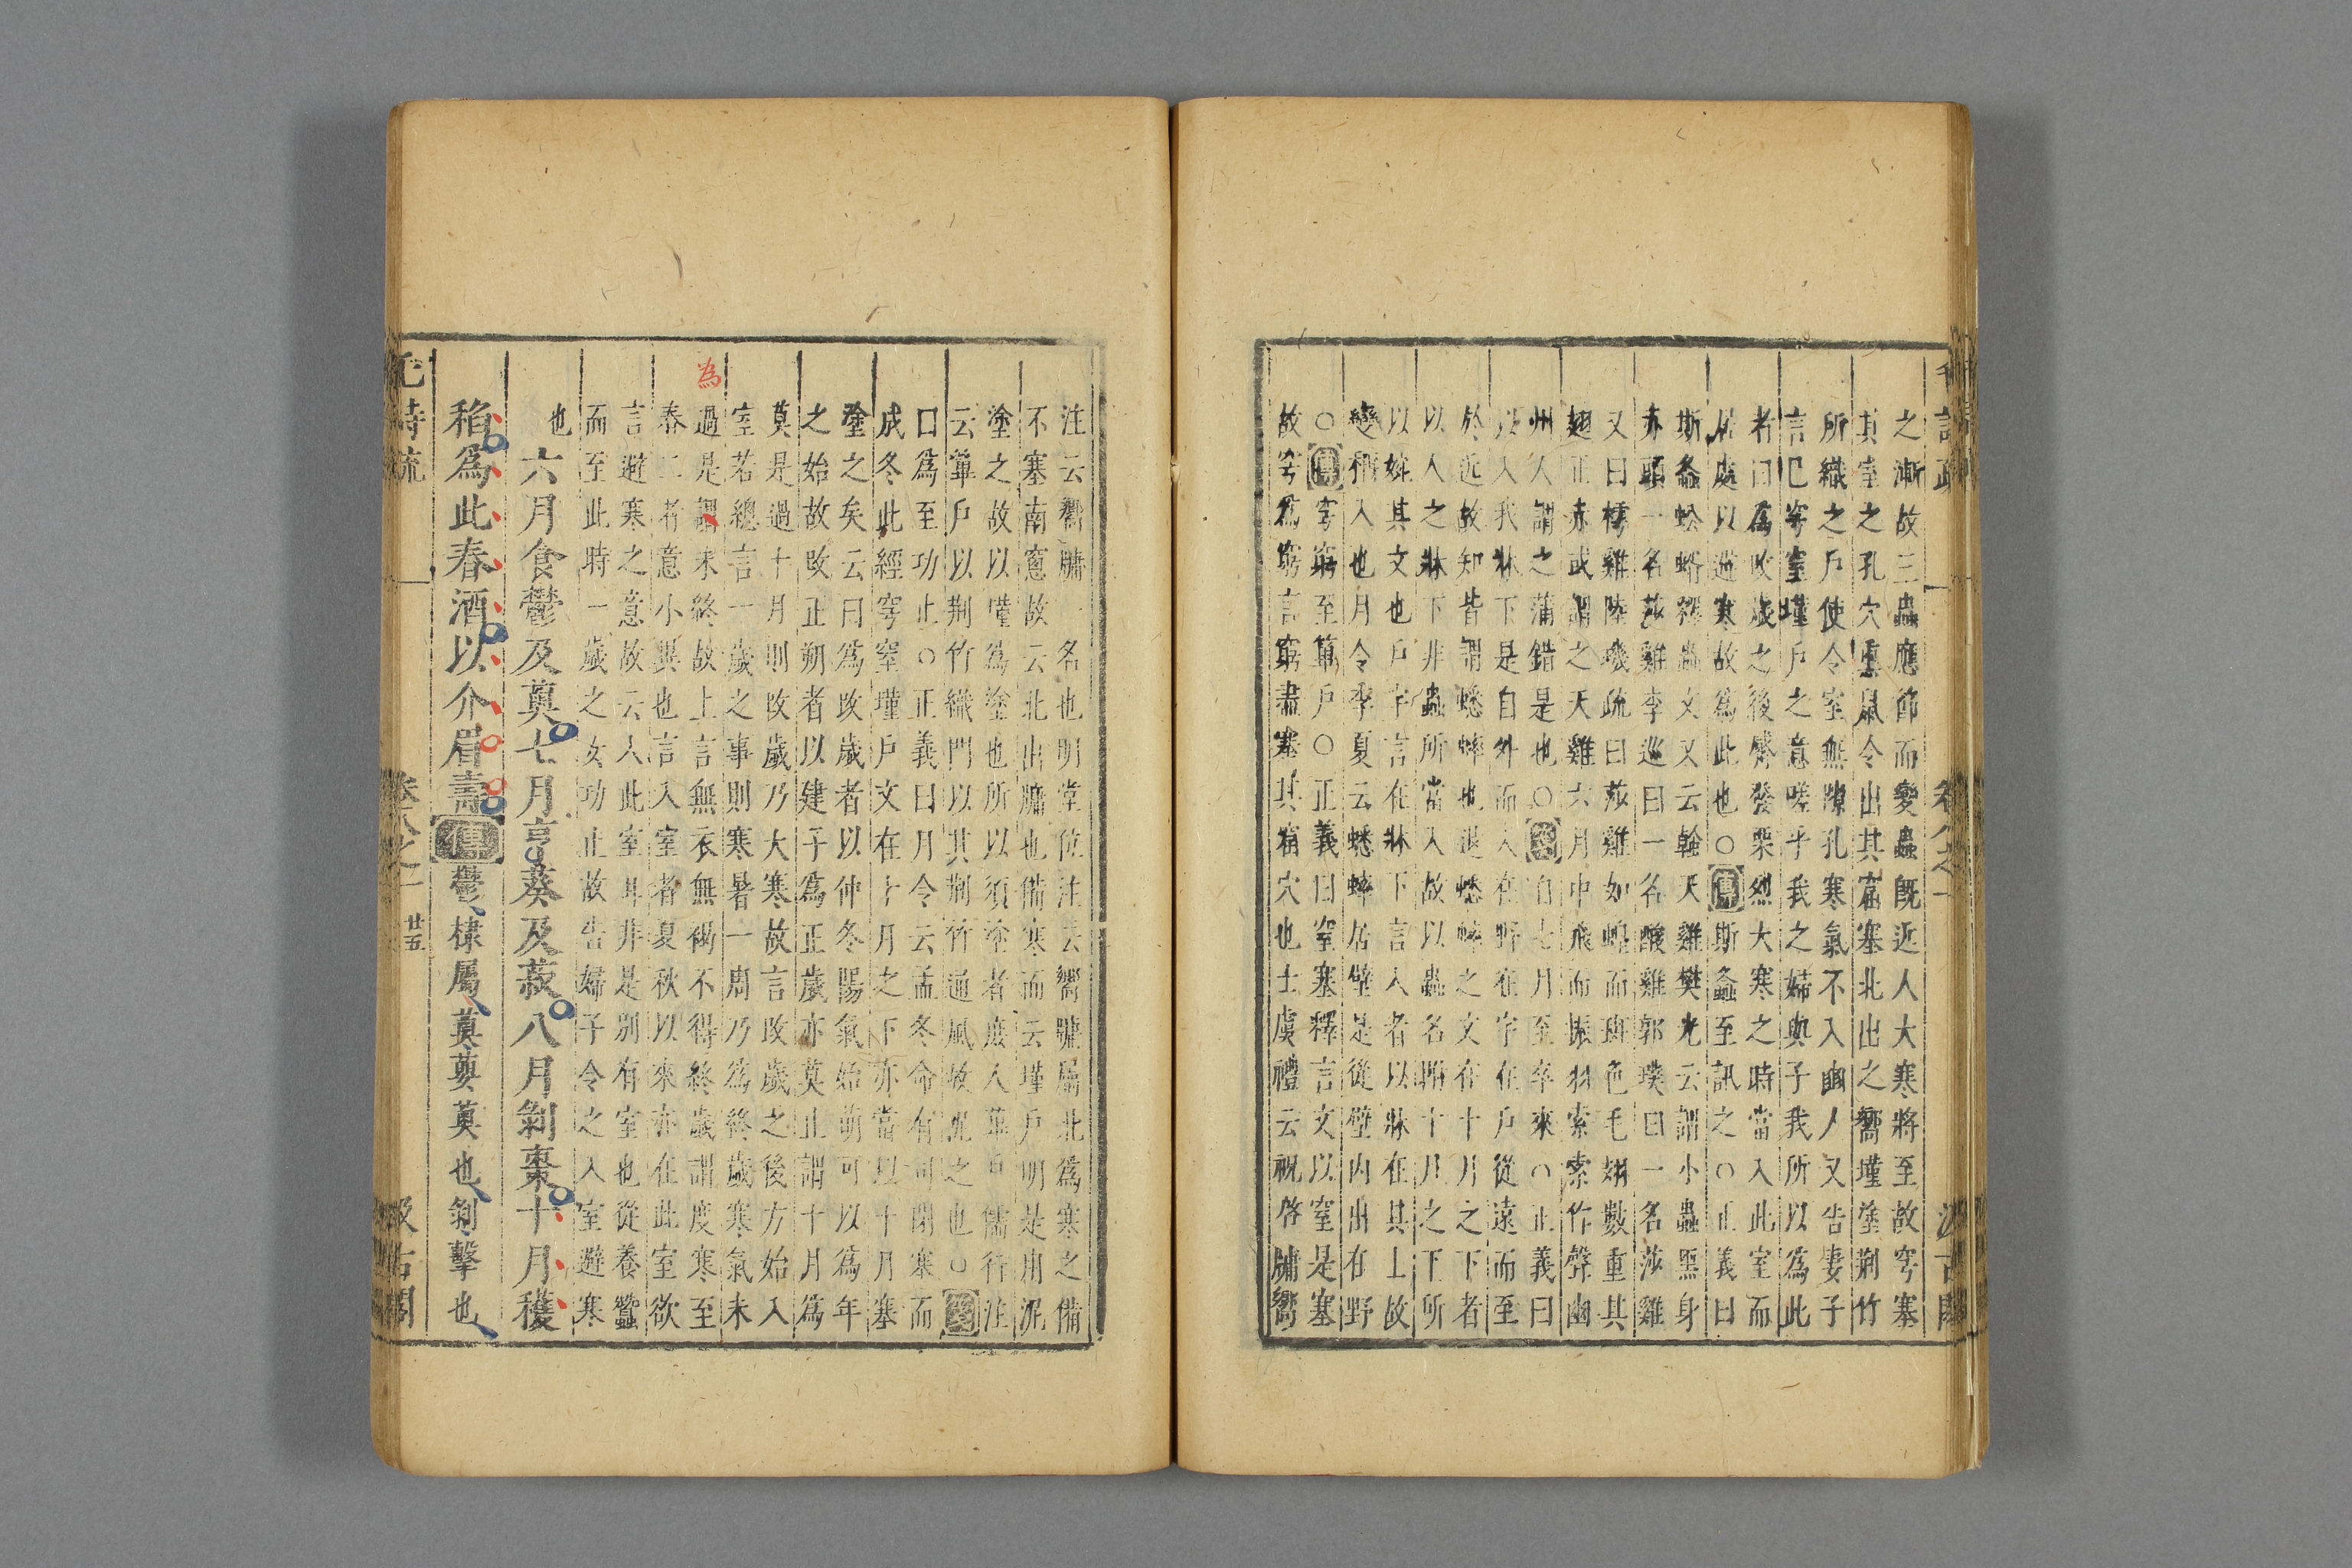 之漸故三蟲應節而變蟲既近人大寒將至故穹塞
其室之孔穴熏鼠令出其窟塞北出之嚮墐塗荆竹
所織之戶使令室無隙孔寒氣不入豳人又告妻子
言已穹窒墐戶之意嗟乎我之婦與子我所以為此
者曰爲改歲之後觱發栗烈大寒之時當入此室而
居處以避寒故爲此也○傳斯螽至訊之○正義曰
斯螽蚣蝑釋蟲文又云螒天雞樊光云謂小蟲黑身
赤頭一名莎雞李巡曰一名酸雞郭璞曰一名莎雞
又曰樗雞陸璣疏曰莎雞如蝗而斑色毛翅數重其
翅正赤或謂之天雞六月中飛而振羽索索作聲幽
州人謂之蒲錯是也○箋自七月至卒來○正義曰
以入我牀下是自外而入在野在宇在戶從遠而至
於近故知皆謂蟋蟀也退蟋蟀之文在十月之下者
以人之牀下非蟲所當入故以蟲名附十月之下所
以婉其文也戶宇言在牀下言入者以牀在其上故
變稱入也月令季夏云蟋蟀居壁是從壁內出在野
○傳穹窮至篳戶○正義曰窒塞釋言文以窒是塞
故穹爲窮言窮盡塞其窟穴也士虞禮云祝啓牖嚮
注云嚮牖一名也明堂位注云嚮牖屬北爲寒之備
不塞南窻故云北出牖也備寒而云墐戶明是用泥
塗之故以墐爲塗也所以須塗者庶人篳戶儒行注
云篳戶以荆竹織門以其荆竹通風故泥之也○箋
口爲至功止○正義曰月令云孟冬命有司閉塞而
成冬此經穹窒墐戶文在十月之下亦當以十月塞
塗之矣云曰爲改歲者以仲冬陽氣始萌可以爲年
之始故改正朔者以建子爲正歲亦莫止謂十月爲
莫是過十月則改歲乃大寒故言改歲之後方始入
室若總言一歲之事則寒暑一周乃爲終歲寒氣未
過是謂未終故上言無衣無褐不得終歲謂度寒至
春二者意小異也言入室者夏秋以來亦在此室欲
言避寒之意故云入此室耳非是別有室也從養蠶
而至此時一歲之女功止故告婦子令之入室避寒
也
為
六月食鬱及薁七月亨葵及菽八月剝棗十月穫
稻爲此春酒以介眉壽傳鬱棣屬薁蘡薁也剝擊也
毛詩疏
卷八之一
廿五
汲古閣